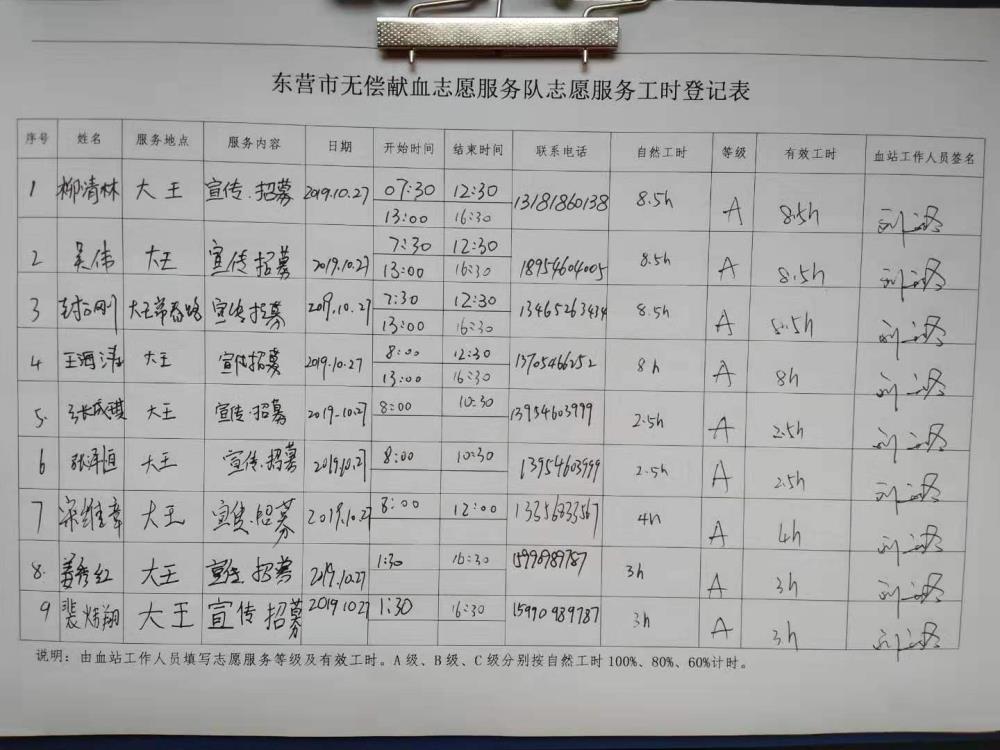 东营市无偿献血志愿服务队志愿服务工时登记表
序号 姓名 服务地点 服务内容 日期 开始时间 结束时间 联系电话 自然工时 等级 有效工时 血站工作人员签名
1 柳清林 大王 宣传.招募 2019.10.27 07:30 12:30 13181860138 8.5h A 8.5h
13:00 16:30
2 吴伟 大王 宣传招募 2019.10.27 7:30 12:30 18954604005 8.5h A 8.5h
13:00 16:30
3 大王常春路 宣传招募 2019.10.27 7:30 12:30 13465263434 8.5h A 8.5h
13:00 16:30
4 王海涛 大王 宣传招募 2019.10.27 8:00 12:30 13705466252 8h A 8h
13:00 16:30
5. 张成琪 大王 宣传.招募 2019-10-27 8:00 10:30 13954603999 2.5h A 2.5h
6 张泽恒 大王 宣传.招募 2019.10.27 8:00 10:30 13954603999 2.5h A 2.5h
7 梁维章 大王 宣传.招募 2019.10.27 8:00 12:00 4h A 4h
8. 姜秀红 大王 宣传 招募 2019.10.27 1:30 16:30 15990989787 3h A 3h
9 裴炜翔 大王 宣传 招募 2019.1027 1:30 16:30 15990989787 3h A 3h
说明：由血站工作人员填写志愿服务等级及有效工时。A级、B级、C级分别按自然工时100%、80%、60%计时。